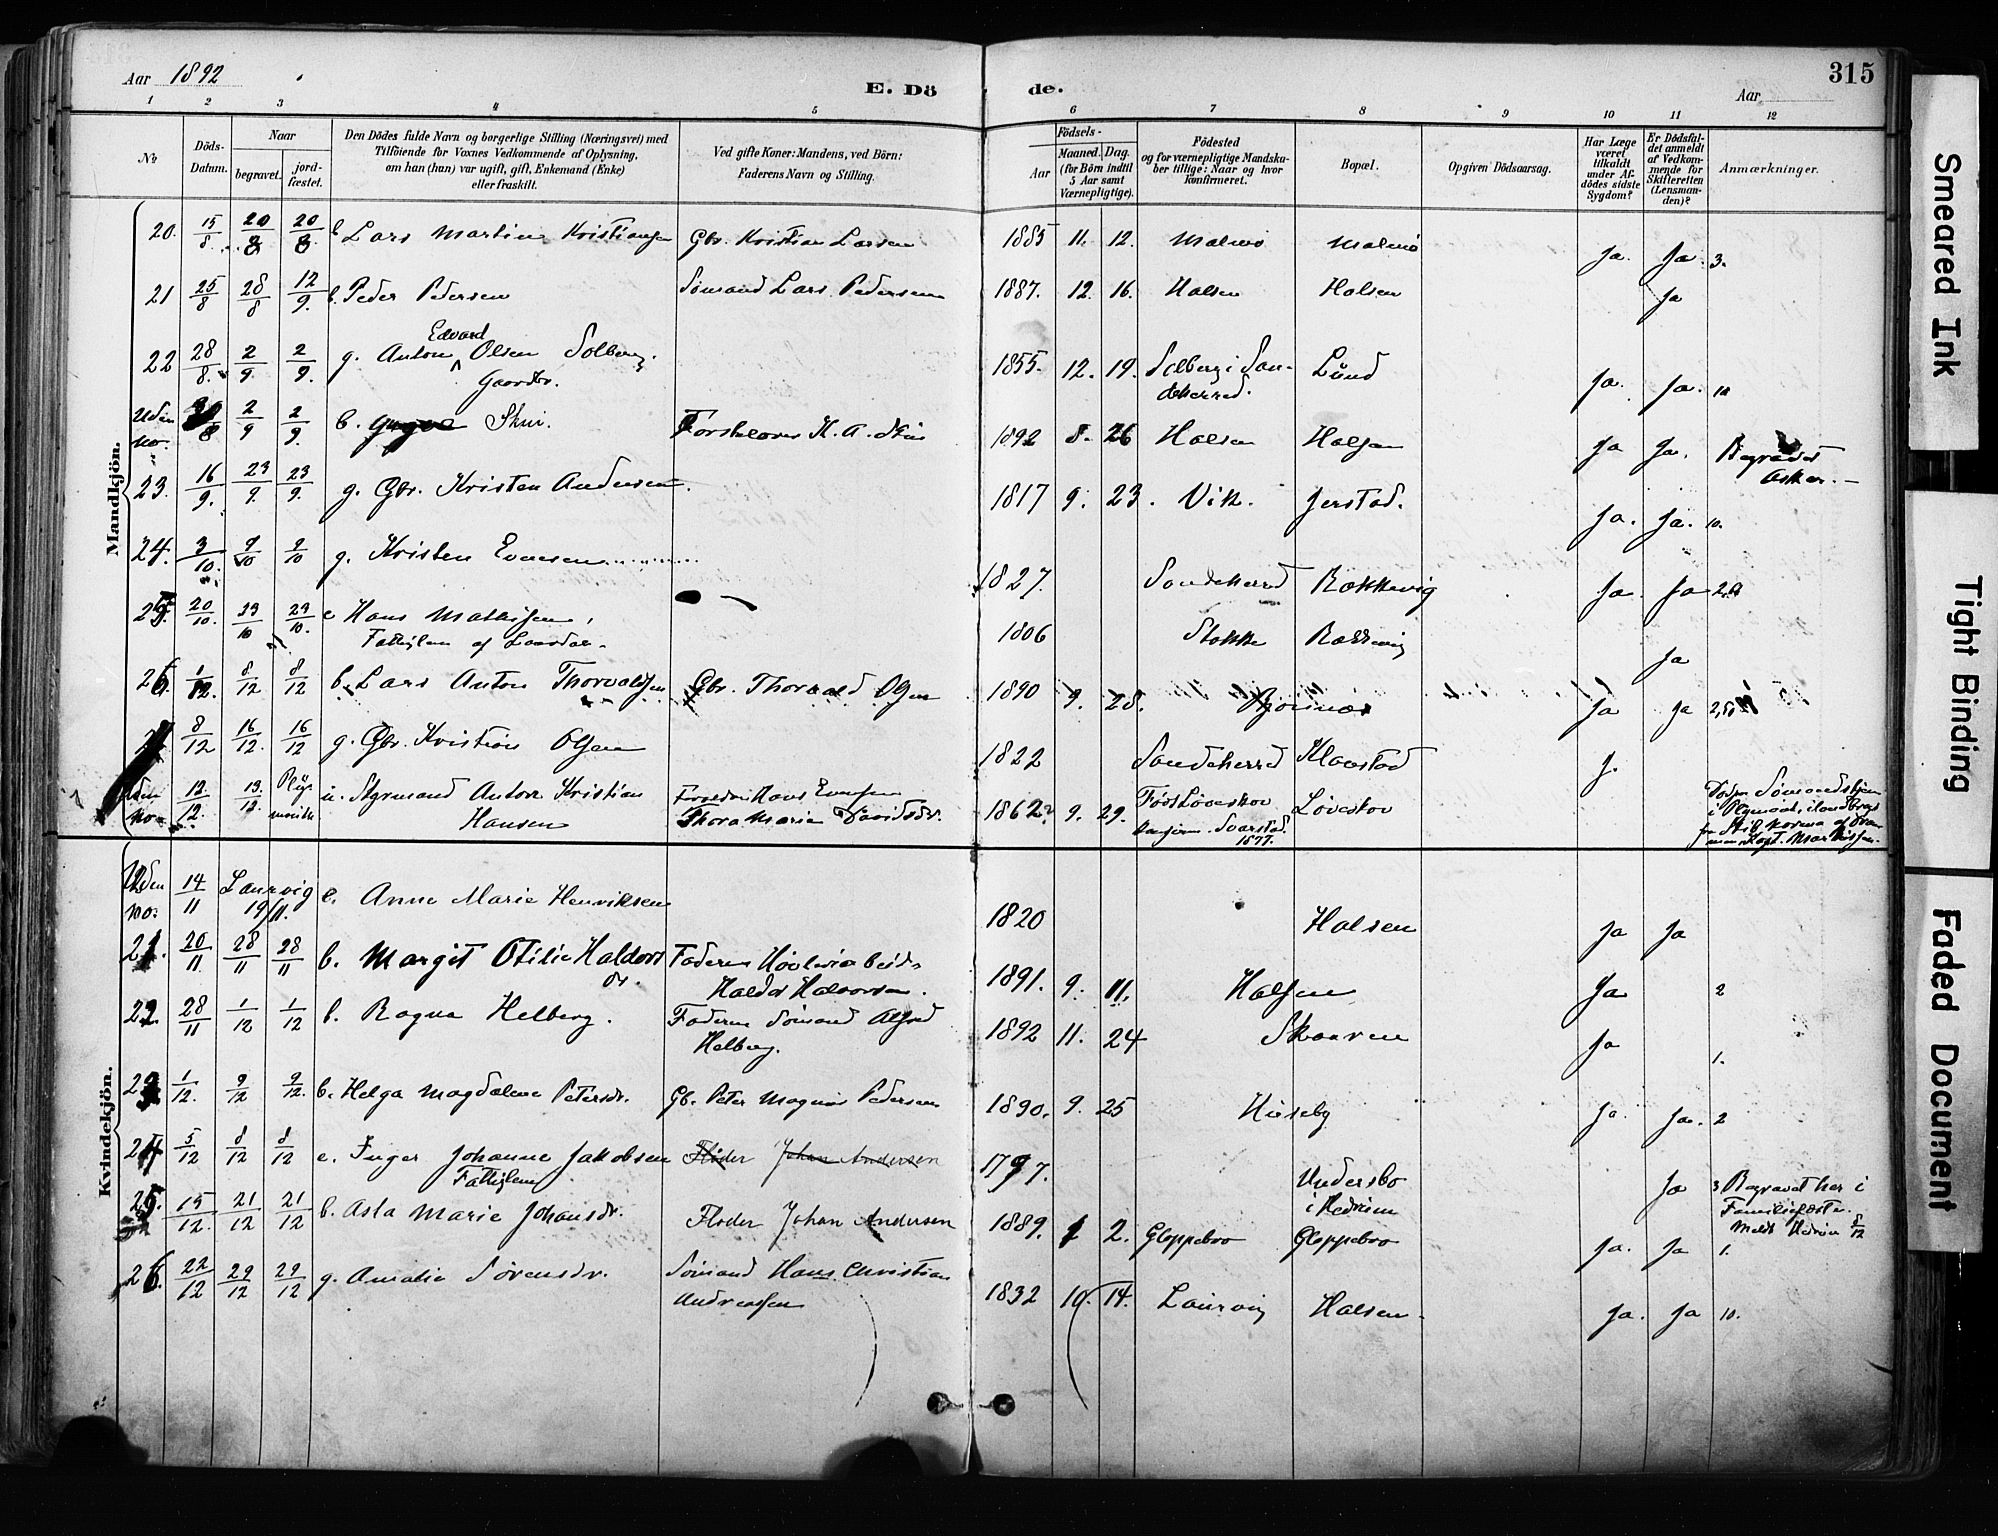 Aar 1892
E. Dö
de.
315
Aar
1 2 3 4 5 6 7 8 9 10 11 12
No.
Döds-Datum.
Naar
begravet.
jord-fæstet.
Den Dödes fulde Navn og borgerlige Stilling (Næringsvei) med
Tilföiende for Voxnes Vedkommende af Oplysning,
om han (hun) var ugift, gift, Enkemand (Enke)
eller fraskilt.
Ved gifte Koner: Mandens, ved Börn:
Faderens Navn og Stilling.
Födsels-
Aar
Maaned. Dag.
(for Börn indtil
5 Aar samt
Værnepligtige).
Födested
og for værnepligtige Mandska-
ber tillige: Naar og hvor
konfirmeret.
Bopæl.
Opgiven Dödsaarsag.
Har Læge
været
tilkaldt
under Af-
dödes sidste
Sygdom?
Er Dödsfal-
det anmeldt
af Vedkom-
mende for
Skifteretten
(Lensman-
den)?
Anmærkninger.
Mandkjön.
20. 15/8 20/8 20/8 b Lars Martin Kristiansen Gbr. Kristian Larsen 1885 11. 12. Malmö Malmö Ja. Ja. 3.
21 25/8 28/8 12/9 b. Peder Pedersen Sömand Lars Pedersen 1887. 12. 16. Halsen Halsen Ja
22 28/8. 2/9. 2/9. g. Anton Edvard Olsen Solberg. 1855. 12. 19. Solberg i San- Lund Ja. Ja. 10
Gaardbr. deherred.
Uden no. 2/9 2/9. b. Yngve Skui. H. A. Skui 1892 8. 26 Halsen Halsen Ja Ja. Begravet
Asker. —
23. 16/9. 23/9. 23/9. g. Gbr. Kristen Andersen. 1817 9. 23. Vik. Jerstad. Ja. Ja. 10.
24. 3/10. 9/10 9/10 g. Kristen Evensen 1827. Sandeherred Rækkevig Ja. Ja
25. 20/10. 23/10 23/10. e Hans Mathisen, 1806 Stokke Rækkevig Ja
Fattiglem af
26. 1/12. 8/12 8/12 b. Lars Anton Thorvaldsen Gbr. Thorvald Olsen 1890 9. 28. Ja Ja
8/12 16/12. 16/12 g. Gbr. Kristian Olsen 1822 Sandeherred Klavestad J.
Uden no. 12/12. 13/12 u. Styrmand Anton Kristian Hans Evensen 1862 9. 29. Løveskov Løveskov
Hansen Thora Marie Davidsdr. Svarstad. 1877.
Kvindekjön.
Uden no. 14/11 Laurvig 19/11. e. Anne Marie Henriksen 1820 Halsen Ja Ja
21. 20/11 28/11 28/11 b. Margit Otilie Haldors dr. Faderen Høvleriarbeid. 1891. 9. 11. Halsen Ja 2
Haldor Halvorsen.
22. 28/11 1/12 1/12 b. Ragna Helberg. Faderen Sömand Alfred 1892 11. 24 Skaaren Ja 1.
Helberg.
23 1/12. 9/12 9/12. b. Helga Magdalene Petersdr. Gb. Peter Magnus Pedersen 1890. 9. 25 Huseby Ja. Ja. 2
24 5/12 8/12 8/12 e. Inger Johanne Jakobsen Fløder Johan Andersen 1797. Undersbo Ja 3 Begravet her i
Fattiglem i Hedrum Familiegravsted.
25. 15/12. 21/12 21/12 b. Asta Marie Johansdr. Fløder Johan Andersen 1889. 1 2. Gloppebro Gloppebro Ja. Ja 1.
Meldt Hedrum 8/12
26. 22/12 29/12 29/12 g. Amalie Sörensdr. Sömand Hans Christian 1832 10. 14. Laurvig Halsen. Ja. Ja 10.
Andreassen
Smeared Ink
Tight Binding
Faded Document